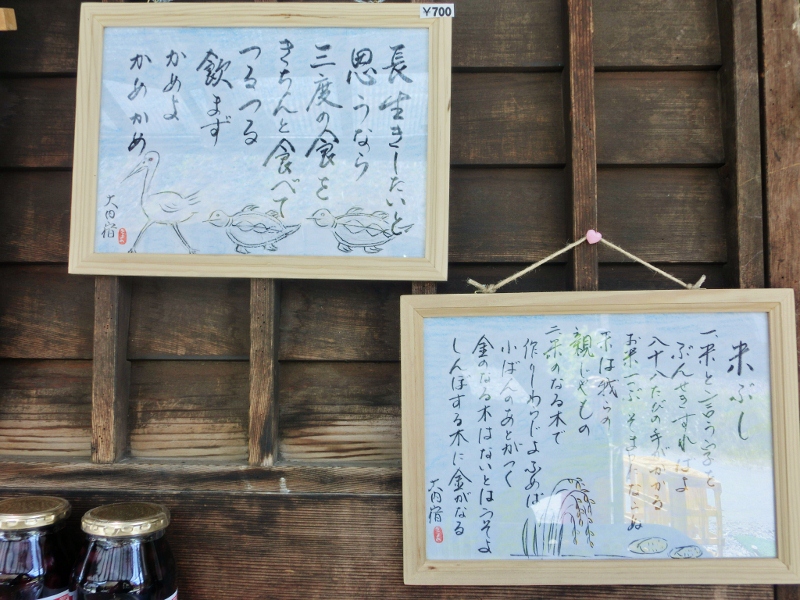 ¥700
長生きしたいと
思うなら
三度の食を
きちんと食べて
つるつる
飲まず
かめよ
かめかめ
大内宿
米ぶし
一、米と言う字を
ぶんせきすればよ
八十八たびの手がかかる
お米一つぶ そまつにならぬ
米は我らの
親じゃもの
二、米のなる木で
作りしわらじよ ふめば
小ばんのあとがつく
金のなる木はないとはうそよ
しんぼする木に金がなる
大内宿